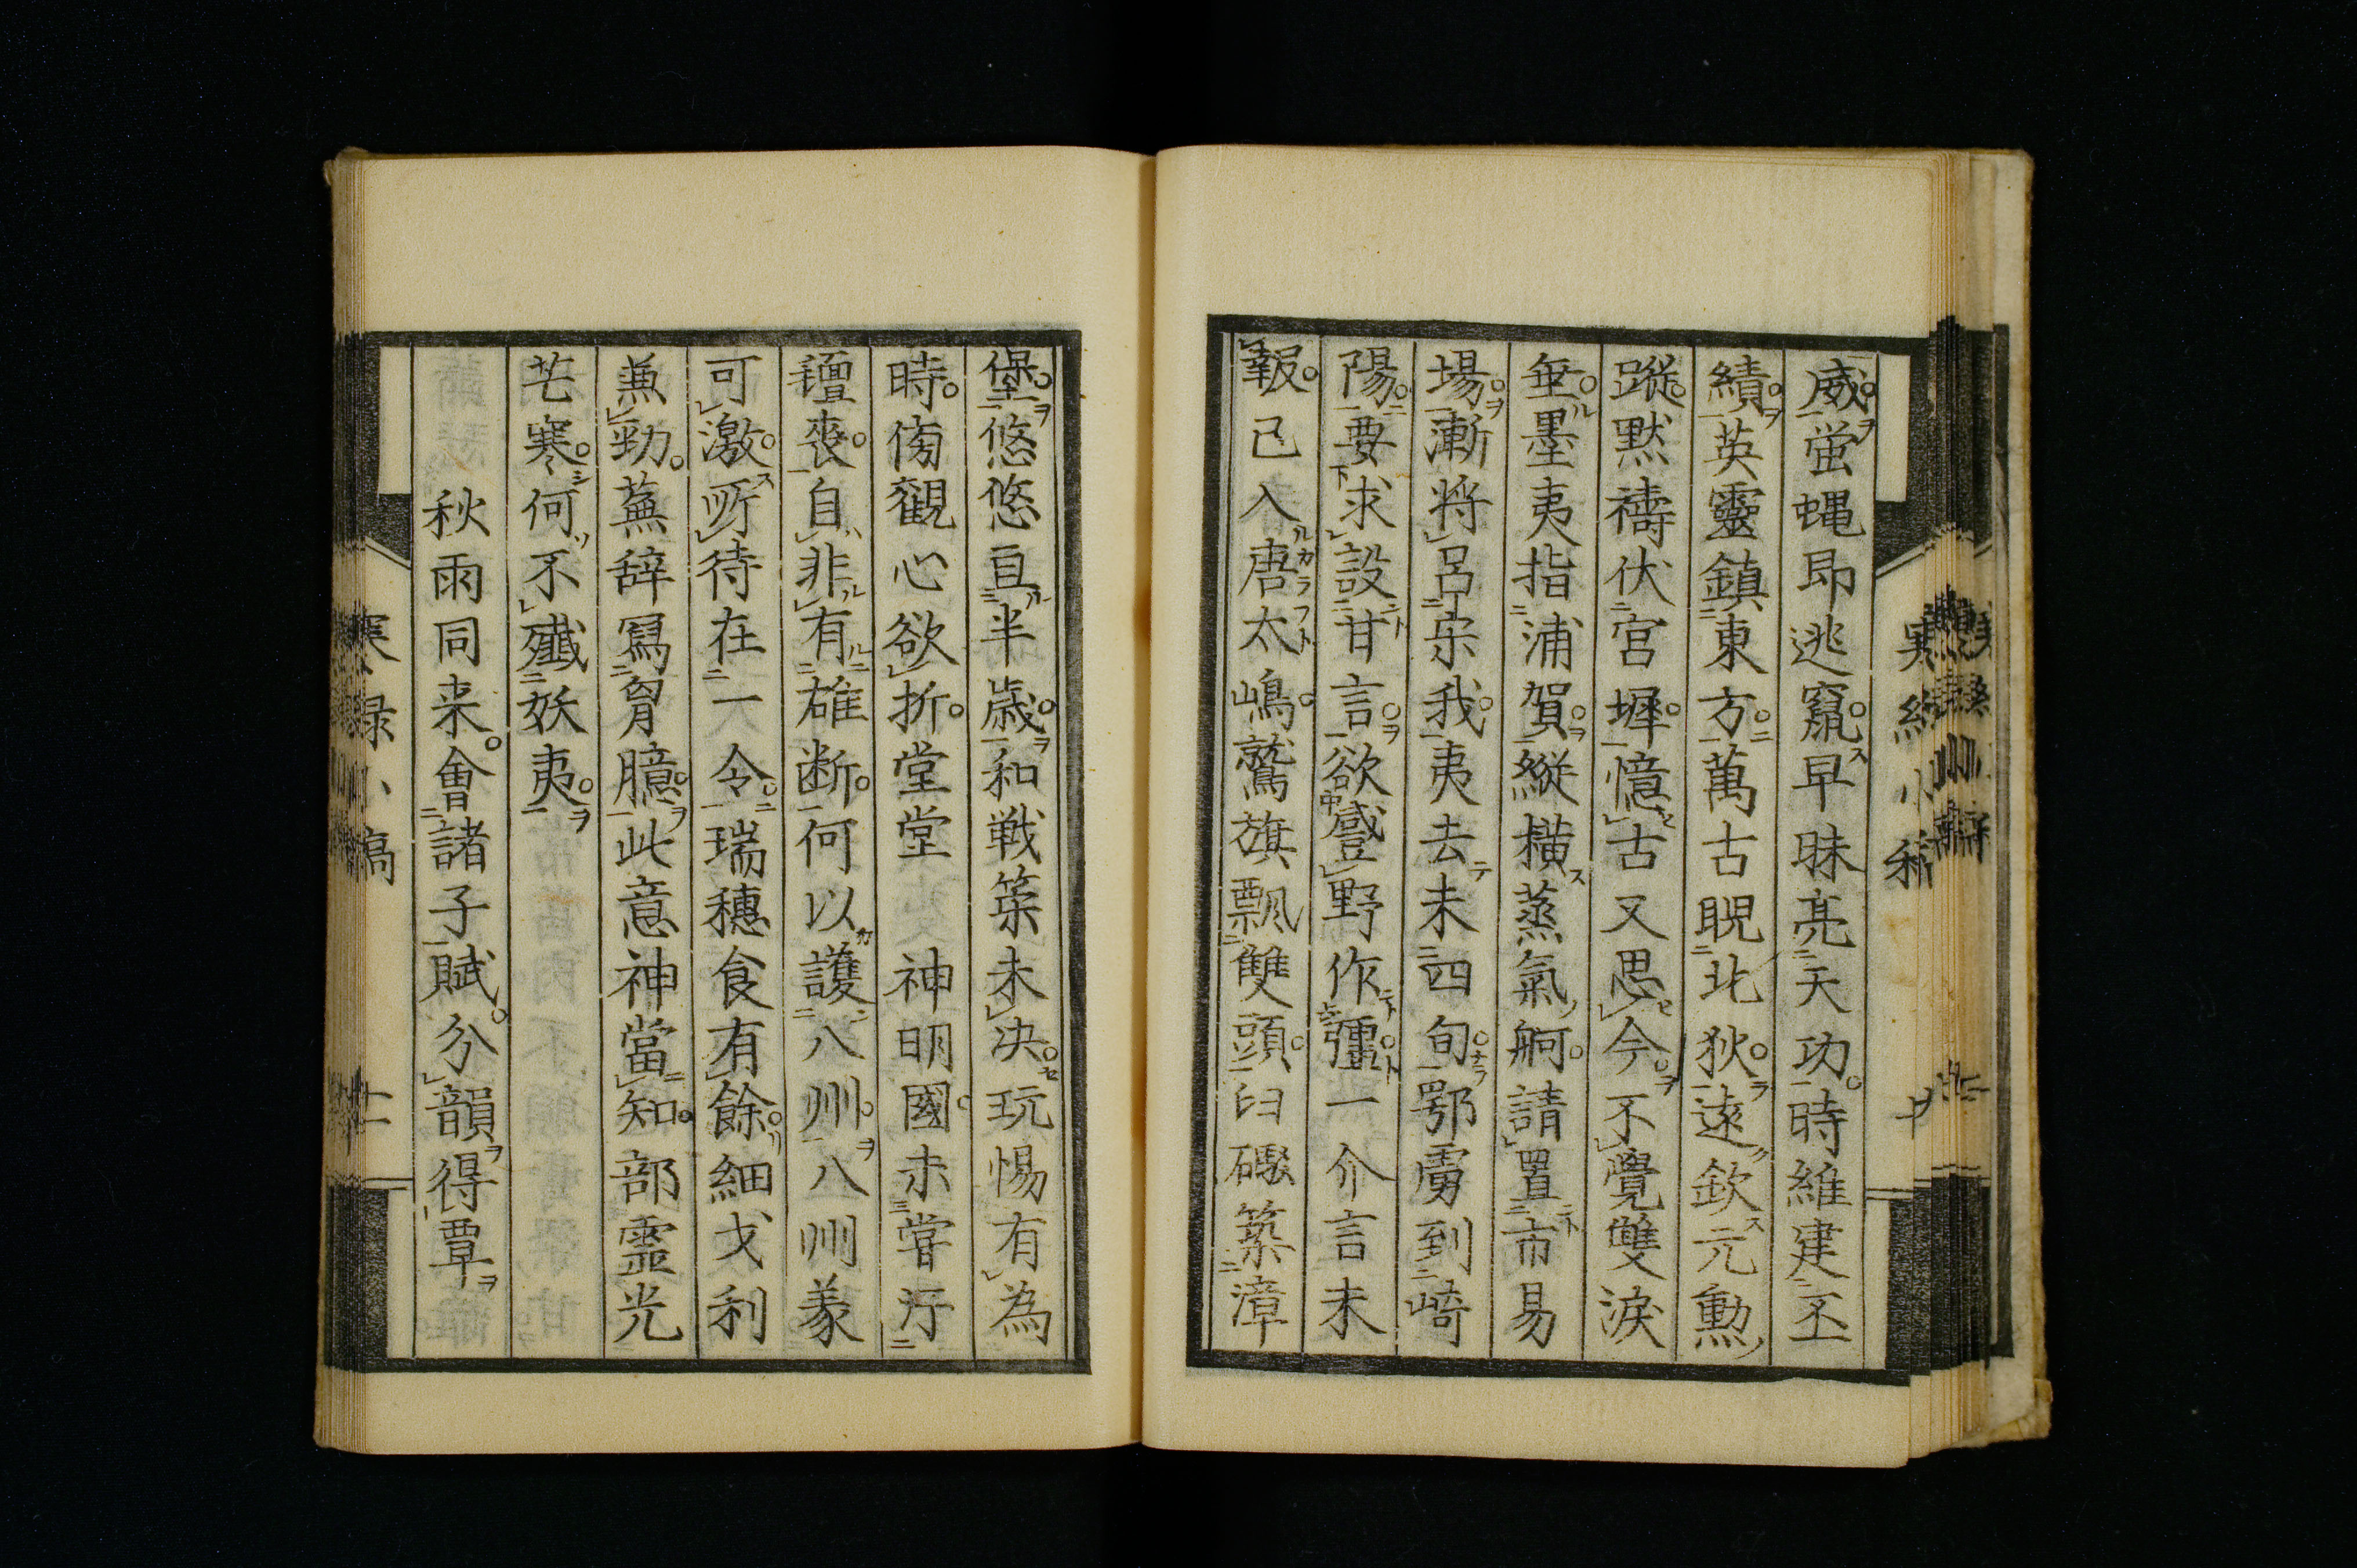 威螢蠅即逃竄早昧亮天功時維建丕
績英靈鎮東方萬古睨北狄遠欽元勳
蹤黙禱伏宮墀憶古又思今不覺雙淚
垂墨夷指浦賀縱横蒸氣舸請置市易
場漸將呂宋我夷去未四旬鄂虜到崎
陽要求設甘言欲噬野作彊一介言未
報已入唐太嶋鷲旗飄雙頭臼礮築漳
堡悠悠亘半歳和戦策未决玩愒有為
時傍觀心欲折堂堂神明國未嘗汙
羶喪自非有雄断何以護八州八州義
可激所待在一令瑞穗食有餘細戈利
無勁蕪辞寫胷臆此意神當知部霊光
芒寒何不殲妖夷
秋雨同来會諸子賦分韻得覃
寒緑小稿